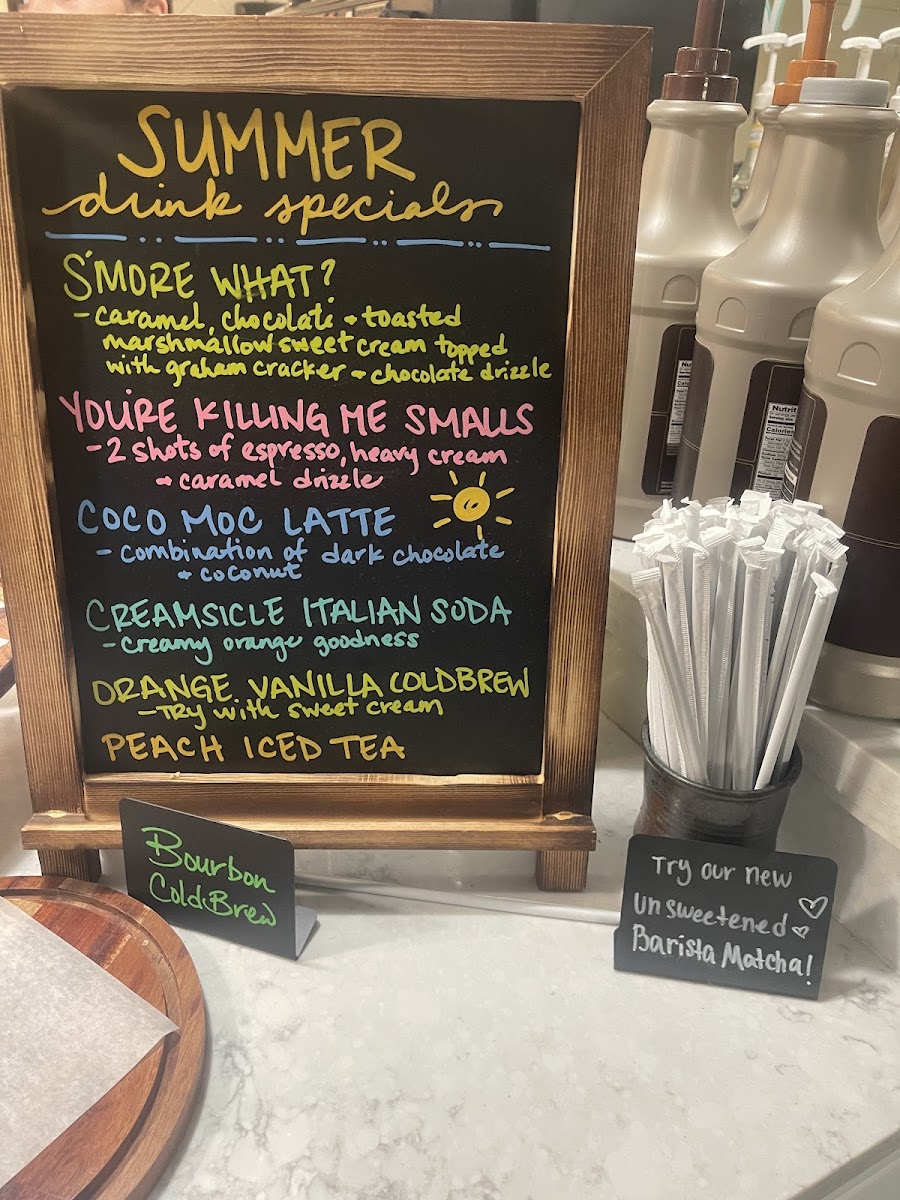 SUMMER
drink specials
S'MORE WHAT?
- caramel, chocolate + toasted
marshmallow sweet cream topped
with graham cracker + chocolate drizzle
YOU'RE KILLING ME SMALLS
- 2 shots of espresso, heavy cream
+ caramel drizzle
COCO MOC LATTE
- combination of dark chocolate
+ coconut
CREAMSICLE ITALIAN SODA
- creamy orange goodness
ORANGE VANILLA COLDBREW
- TRY with sweet cream
PEACH ICED TEA
Bourbon
ColdBrew
Try our new
unsweetened
Barista Matcha!
Nutrit
Calories